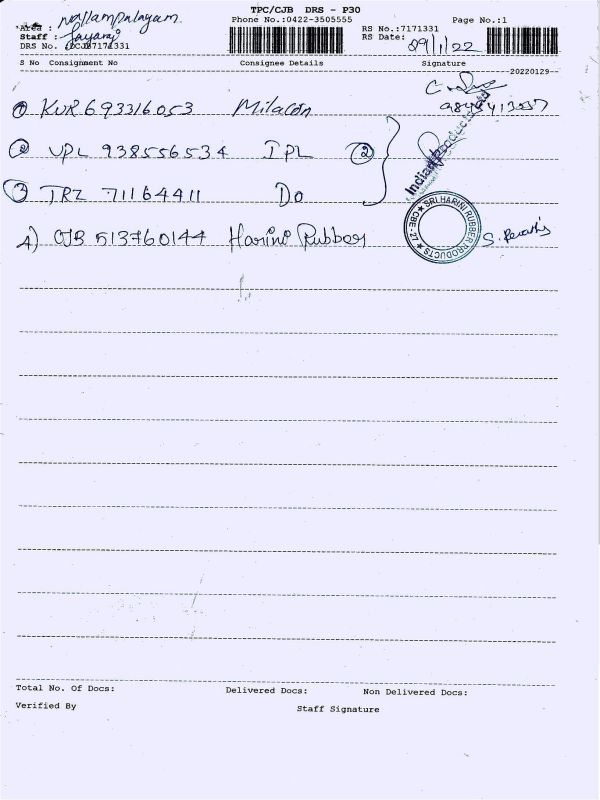 TPC/CJB DRS - P30
Area : Nallampalayam.
Phone No.:0422-3505555
Page No.:1
Staff : Jayaraj
RS No.:7171331
DRS No. :DCJB7171331
RS Date: 09/1/22
S No Consignment No Consignee Details Signature
20220129
① KUR 693316053 Milacon
② VPL 938556534 IPL ②
Indian Products Ltd
③ TRZ 71164411 Do
4) CJB 513760144 Harini Rubber
★ SRI HARINI RUBBER PRODUCTS ★ CBE-27
S. Revathi
Total No. Of Docs: Delivered Docs: Non Delivered Docs:
Verified By Staff Signature